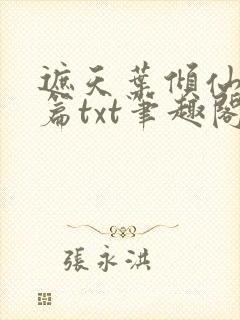 遮天葉傾仙
篇txt筆趣閣
張永洪